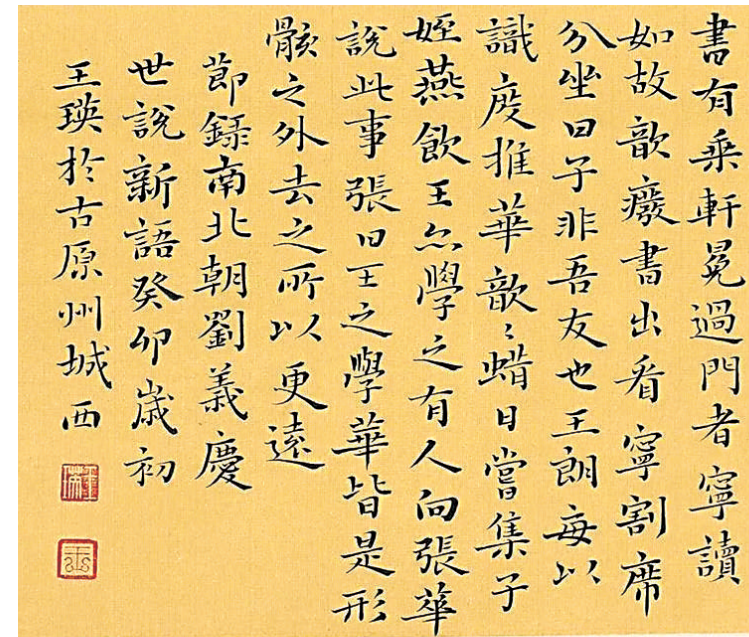 書有乘軒冕過門者寧讀
如故歆廢書出看寧割席
分坐曰子非吾友也王朗每以
識度推華歆歆蜡日嘗集子
姪燕飲王亦學之有人向張華
說此事張曰王之學華皆是形
骸之外去之所以更遠
節錄南北朝劉義慶
世說新語癸卯歲初
王瑛於古原州城西